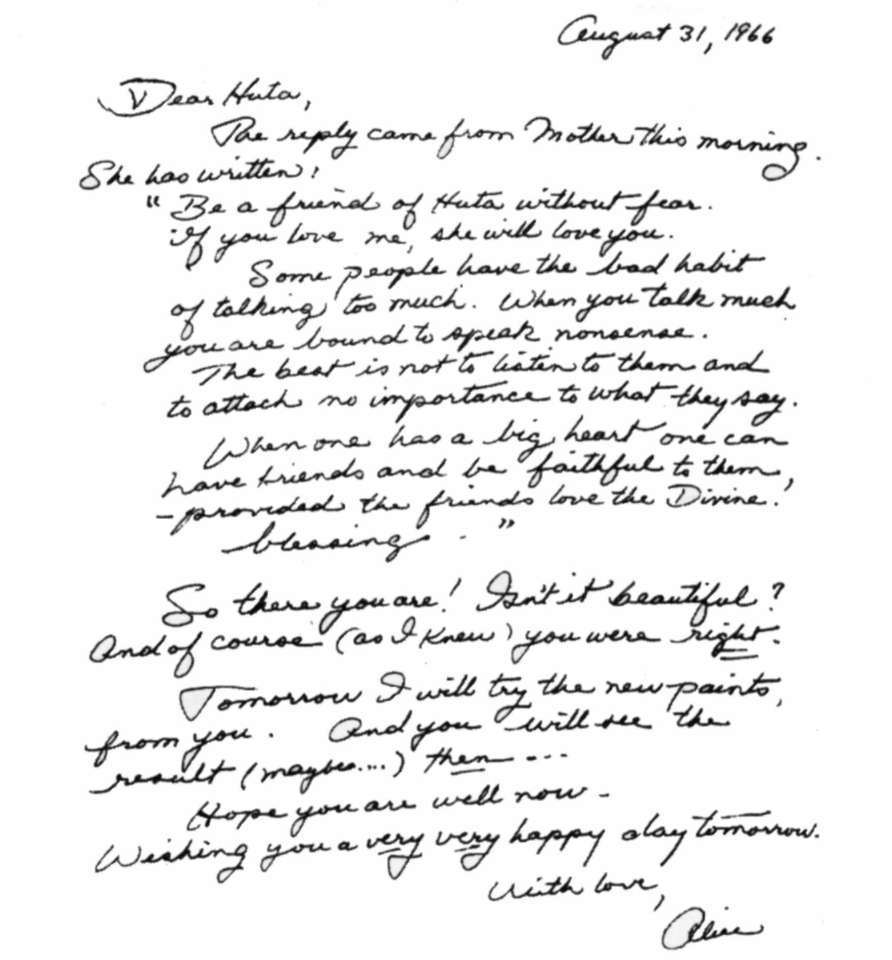 August 31, 1966
Dear Huta,
The reply came from Mother this morning.
She has written:
"Be a friend of Huta without fear.
If you love me, she will love you.
Some people have the bad habit
of talking too much. When you talk much
you are bound to speak nonsense.
The best is not to listen to them and
to attach no importance to what they say.
When one has a big heart one can
have friends and be faithful to them,
– provided the friends love the Divine!
blessings."
So there you are! Isn't it beautiful?
And of course (as I knew) you were right.
Tomorrow I will try the new paints,
from you. And you will see the
result (maybe....) then ---
Hope you are well now –
Wishing you a very very happy day tomorrow.
With love,
Alice